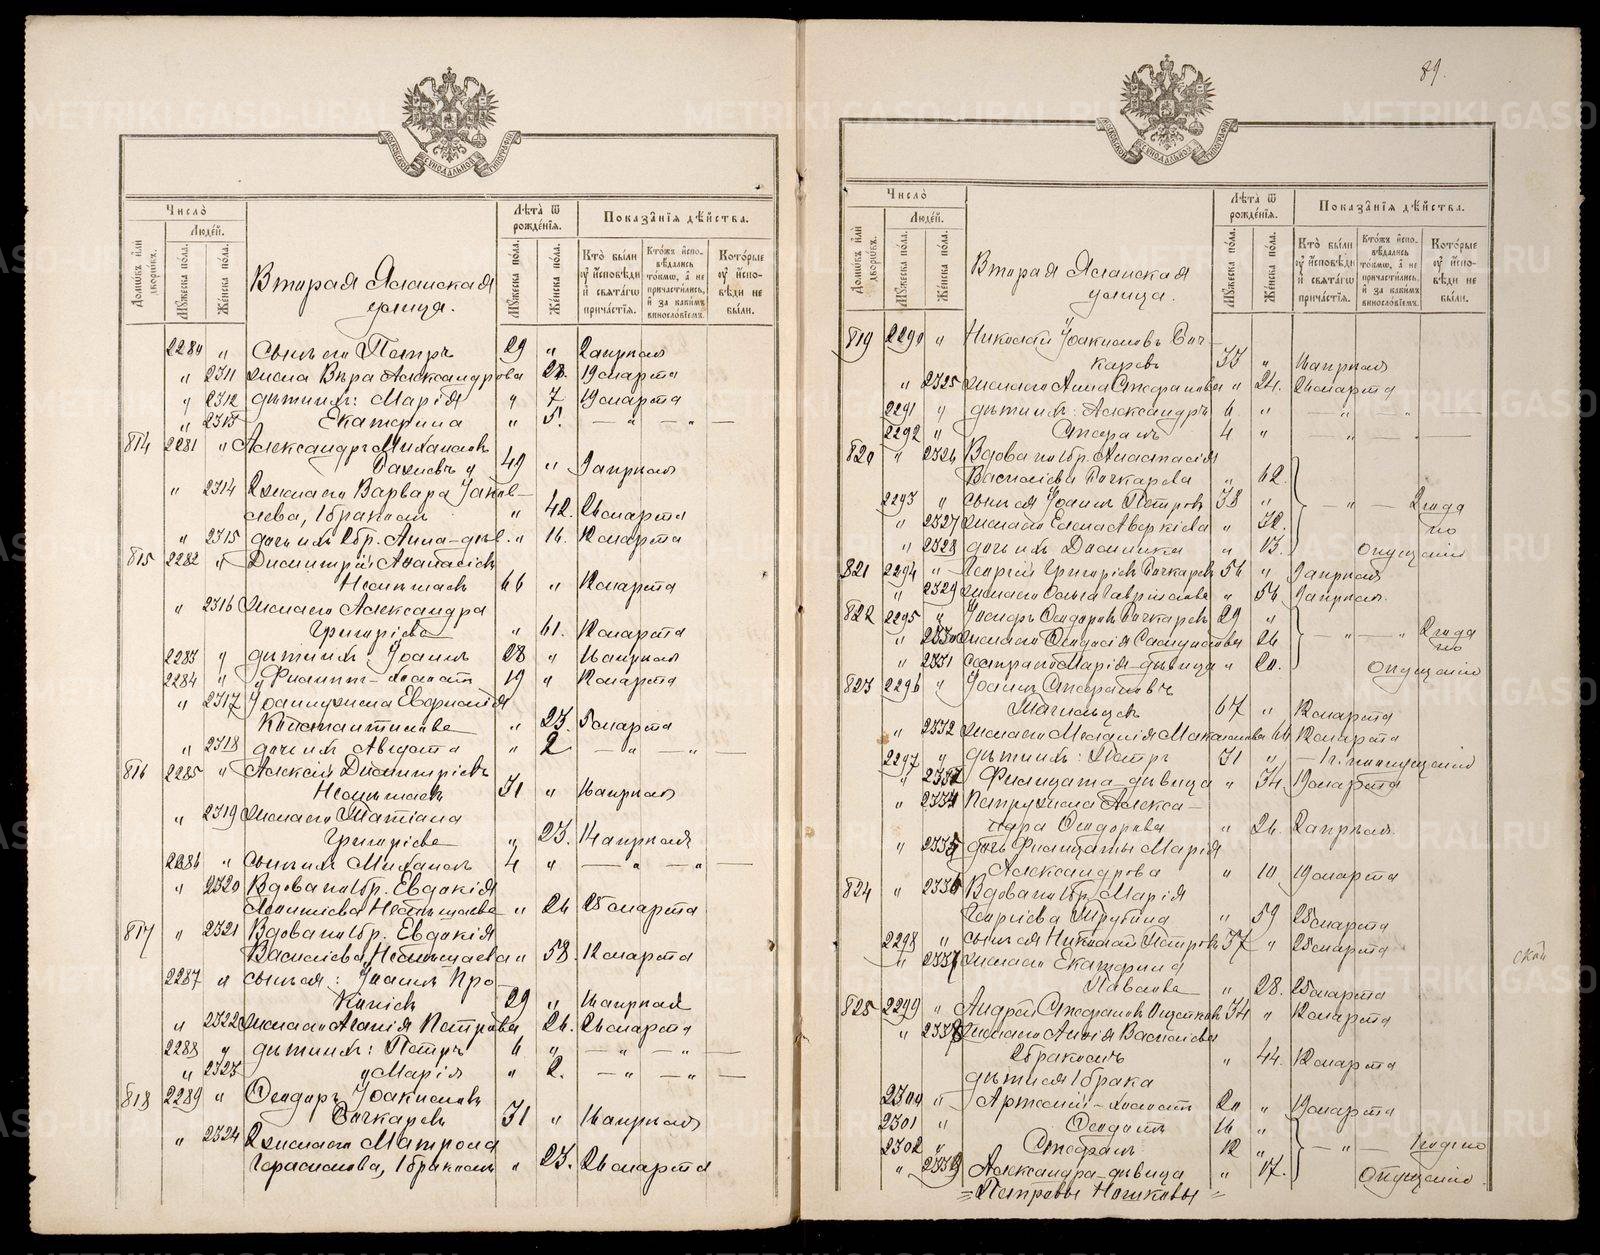 Число̀
Людéй.
Домѡ́въ и҆лѝ дворѡ́въ.
Мꙋ́жеска по́ла.
Же́нска по́ла.
Вторая Ясашская
улица.
Лѣта̀ ѿ рожде́нїѧ.
Мꙋ́жеска по́ла.
Же́нска по́ла.
Показа̂нїѧ дѣ́йства.
Кто̀ бы́ли ᲂу҆ и҆спо́вѣди и҆ свѧта́гѡ прича́стїѧ.
Кто́жъ и҆спо-вѣ́дались то́кмѡ, а҆ не причасти́лись, и҆ за каки́мъ винослѡ́вїемъ.
Кото́рые ᲂу҆ и҆спо-вѣди не бы́ли.
2280 " сынъ его Петръ 29 " 2 апрѣля
" 2311 жена Вѣра Александрова " 28. 19 марта
" 2312 дѣти ихъ: Марія " 7 19 марта
" 2313 Екатерина " 5. — " — " —
814 2281 " Александръ Михаиловъ
49 " 9 апрѣля
" 2314 2 жена его Варвара Яков-
лева, 1 бракомъ " 42. 26 марта
" 2315 дочь ихъ 2 бр. Анна - дѣв. " 16. 12 марта
815 2282 " Димитрій Аѳанасіевъ
66 " 12 марта
" 2316 жена его Александра
Григоріева " 61. 12 марта
2283 " дѣти ихъ: Іоаннъ 28 " 16 апрѣля
2284 " " Филиппъ - холостъ 19 " 12 марта
" 2317 Іоанну жена Евфимія
Константинова " 23. 5 марта
" 2318 дочь ихъ Августа " 2 — " — " —
816 2285 " Алексій Димитріевъ
31 " 16 апрѣля
" 2319 жена его Татіана
Григоріева " 23. 14 апрѣля
2286 " сынъ ихъ Михаилъ 4 " — " — " —
" 2320 Вдова по 1 бр. Евдокія
" 26 25 марта
817 " 2321 Вдова по 1 бр. Евдокія
Василіева " 58. 12 марта
2287 " сынъ ея: Іоаннъ Про-
копіевъ 29 " 16 апрѣля
" 2322 жена его Агапія Петрова " 26. 26 марта
2288 " дѣти ихъ: Петръ 6 " — " — " —
" 2323 " Марія " 2. — " — " —
818 2289 " Ѳеодоръ Іоакимовъ
Бочкаревъ 31 " 16 апрѣля
" 2324 2 жена его Матрона
Герасимова, 1 бракомъ " 23. 26 марта
89.
Число̀
Людéй.
Домѡ́въ и҆лѝ дворѡ́въ.
Мꙋ́жеска по́ла.
Же́нска по́ла.
Вторая Ясашская
улица.
Лѣта̀ ѿ рожде́нїѧ.
Мꙋ́жеска по́ла.
Же́нска по́ла.
Показа̂нїѧ дѣ́йства.
Кто̀ бы́ли ᲂу҆ и҆спо́вѣди и҆ свѧта́гѡ прича́стїѧ.
Кто́жъ и҆спо-вѣ́дались то́кмѡ, а҆ не причасти́лись, и҆ за каки́мъ винослѡ́вїемъ.
Кото́рые ᲂу҆ и҆спо-вѣди не бы́ли.
819 2290 " Николай Іоакимовъ Боч-
каревъ 33 " 16 апрѣля
" 2325 жена его Анна Стефанова " 24. 26 марта
2291 " дѣти ихъ: Александръ 6. " — " " —
2292 " Стефанъ 4 " — " — . —
820 " 2326 Вдова по 1 бр. Анастасія
Василіева Бочкарева " 62.
2293 " сынъ ея Іоаннъ Петровъ 38 " — " — 2 года
" 2327 жена его Елена Аверкіева " 32. по
" 2328 дочь ихъ Домника " 13. опущенію
821 2294 " Георгій Григоріевъ Бочкаревъ 56 " 9 апрѣля
" 2329 жена его Ольга Гавріилова " 56 9 апрѣля.
822 2295 " Ѳеодоровъ Бочкаревъ 29 " — " — " 2 года
" 2330 жена его Ѳеодосія 26 по
" 2331 сестра его Марія - дѣвица " 20. опущенію
823 2296 " Іоаннъ Стефановъ
67 " 12 марта
" 2332 жена его 64 12 марта
2297 " дѣти ихъ: Петръ 31 " — 1 г. по опущенію
" 2333 Филицата - дѣвица " 34. 19 марта
" 2334 Петру жена Алекса-
ндра Ѳеодорова " 26. 2 апрѣля.
" 2335 дочь Филицаты Марія
Александрова " 10 19 марта
824 " 2336 Вдова по 1 бр. Марія
Георгіева Трубина " 59 25 марта
2298 " сынъ ея Николай Петровъ 37 " 25 марта
" 2337 жена его Екатерина
Павлова " 28. 25 марта
825 2299 " Андрей Стефановъ 34 " 12 марта
" 2338 жена его Анна Василіева
2 бракомъ " 44. 12 марта
дѣти ея 1 брака
2300 " Артемій - холостъ 20 " 19 марта
2301 " Ѳеодотъ 16 "
2302 " Стефанъ 12 " — " — 1 годъ по
" 2339 Александра - дѣвица " 17. опущенію.
= Петровы Ношковы =
METRIKI.GASO-URAL.RU